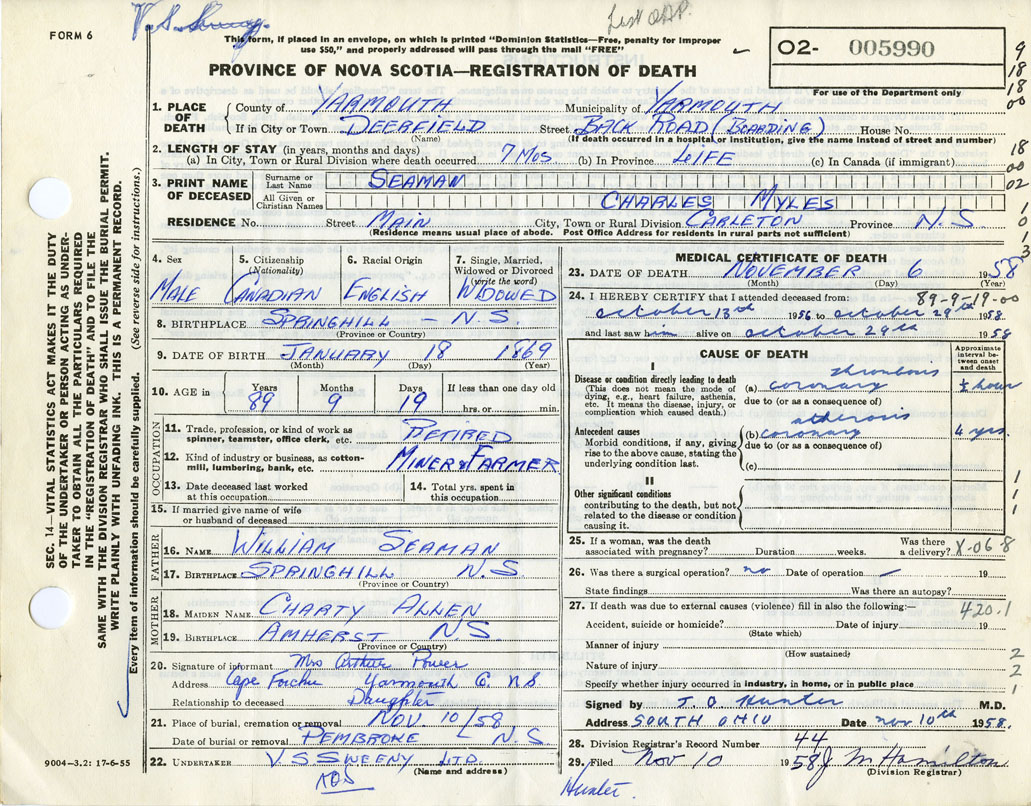 FORM 6
V. S. Sweeny.
List OAP.
This form, if placed in an envelope, on which is printed "Dominion Statistics—Free, penalty for improper
use $50," and properly addressed will pass through the mail "FREE"
O2- 005990
For use of the Department only
PROVINCE OF NOVA SCOTIA—REGISTRATION OF DEATH
9
18
18
00
18
00
02
1
0
1
3
1. PLACE OF DEATH
County of YARMOUTH Municipality of YARMOUTH
If in City or Town DEERFIELD Street BACK ROAD (BOARDING) House No.
(Name) (If death occurred in a hospital or institution, give the name instead of street and number)
2. LENGTH OF STAY (in years, months and days)
(a) In City, Town or Rural Division where death occurred 7 MOS (b) In Province LIFE (c) In Canada (if immigrant)
3. PRINT NAME OF DECEASED
Surname or Last Name SEAMAN
All Given or Christian Names CHARLES MYLES
RESIDENCE No. Street MAIN City, Town or Rural Division CARLETON Province N.S
(Residence means usual place of abode. Post Office Address for residents in rural parts not sufficient)
4. Sex
MALE
5. Citizenship (Nationality)
CANADIAN
6. Racial Origin
ENGLISH
7. Single, Married, Widowed or Divorced (write the word)
WIDOWED
8. BIRTHPLACE SPRINGHILL - N.S.
(Province or Country)
9. DATE OF BIRTH JANUARY 18 1869
(Month) (Day) (Year)
10. AGE in
Years 89
Months 9
Days 19
If less than one day old
hrs. or min.
OCCUPATION
11. Trade, profession, or kind of work as spinner, teamster, office clerk, etc. RETIRED
12. Kind of industry or business, as cotton-mill, lumbering, bank, etc. MINER & FARMER
13. Date deceased last worked at this occupation
14. Total yrs. spent in this occupation
15. If married give name of wife or husband of deceased
FATHER
16. NAME WILLIAM SEAMAN
17. BIRTHPLACE SPRINGHILL N.S
(Province or Country)
MOTHER
18. MAIDEN NAME CHARTY ALLEN
19. BIRTHPLACE AMHERST NS
(Province or Country)
20. Signature of informant Mrs Arthur Power
Address Cape Forchu Yarmouth Co. N.S.
Relationship to deceased Daughter
21. Place of burial, cremation or removal NOV 10/58
Date of burial or removal PEMBROKE - N.S
22. UNDERTAKER V.S SWEENY LTD.
(Name and address)
MEDICAL CERTIFICATE OF DEATH
23. DATE OF DEATH NOVEMBER 6 1958
(Month) (Day) (Year)
24. I HEREBY CERTIFY that I attended deceased from: 89-9-19-00
october 13th 1956 to october 29th 1958
and last saw him alive on october 29th 1958
CAUSE OF DEATH
Approximate interval between onset and death
I
Disease or condition directly leading to death
(This does not mean the mode of dying, e.g., heart failure, asthenia, etc. It means the disease, injury, or complication which caused death.)
(a) coronary thrombosis ½ hour
due to (or as a consequence of)
Antecedent causes
Morbid conditions, if any, giving rise to the above cause, stating the underlying condition last.
(b) coronary 4 yrs.
due to (or as a consequence of)
(c)
II
Other significant conditions
contributing to the death, but not related to the disease or condition causing it.
1
1
1
25. If a woman, was the death associated with pregnancy? Duration weeks. Was there a delivery? X-068
26. Was there a surgical operation? no Date of operation - 19
State findings Was there an autopsy?
27. If death was due to external causes (violence) fill in also the following:— 420.1
Accident, suicide or homicide? Date of injury 19
(State which)
Manner of injury
(How sustained)
Nature of injury
Specify whether injury occurred in industry, in home, or in public place
2
2
1
Signed by J. O Hunter M.D.
Address SOUTH OHIO Date Nov 10th 1958.
28. Division Registrar's Record Number 44
29. Filed Nov 10 1958 J M Hamilton
(Division Registrar)
Hunter.
SEC. 14—VITAL STATISTICS ACT MAKES IT THE DUTY
OF THE UNDERTAKER OR PERSON ACTING AS UNDER-
TAKER TO OBTAIN ALL THE PARTICULARS REQUIRED
IN THE "REGISTRATION OF DEATH" AND TO FILE THE
SAME WITH THE DIVISION REGISTRAR WHO SHALL ISSUE THE BURIAL PERMIT.
WRITE PLAINLY WITH UNFADING INK. THIS IS A PERMANENT RECORD.
Every item of information should be carefully supplied. (See reverse side for instructions.)
9004—3.2: 17-6-55